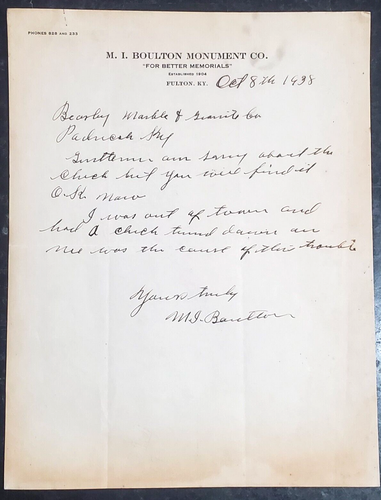 PHONES 
M. I. BOULTON MONUMENT CO.
"FOR BETTER MEMORIALS"
ESTABLISHED 1904
FULTON, KY.
Oct 8th 1938
Marble & Granite Co
Paducah Ky
Gentlemen am sorry about the
check but you will find it
O.K. Now
I was out of town and
had a check turned down on
me was the cause of this trouble
Yours truly
M.I. Boulton